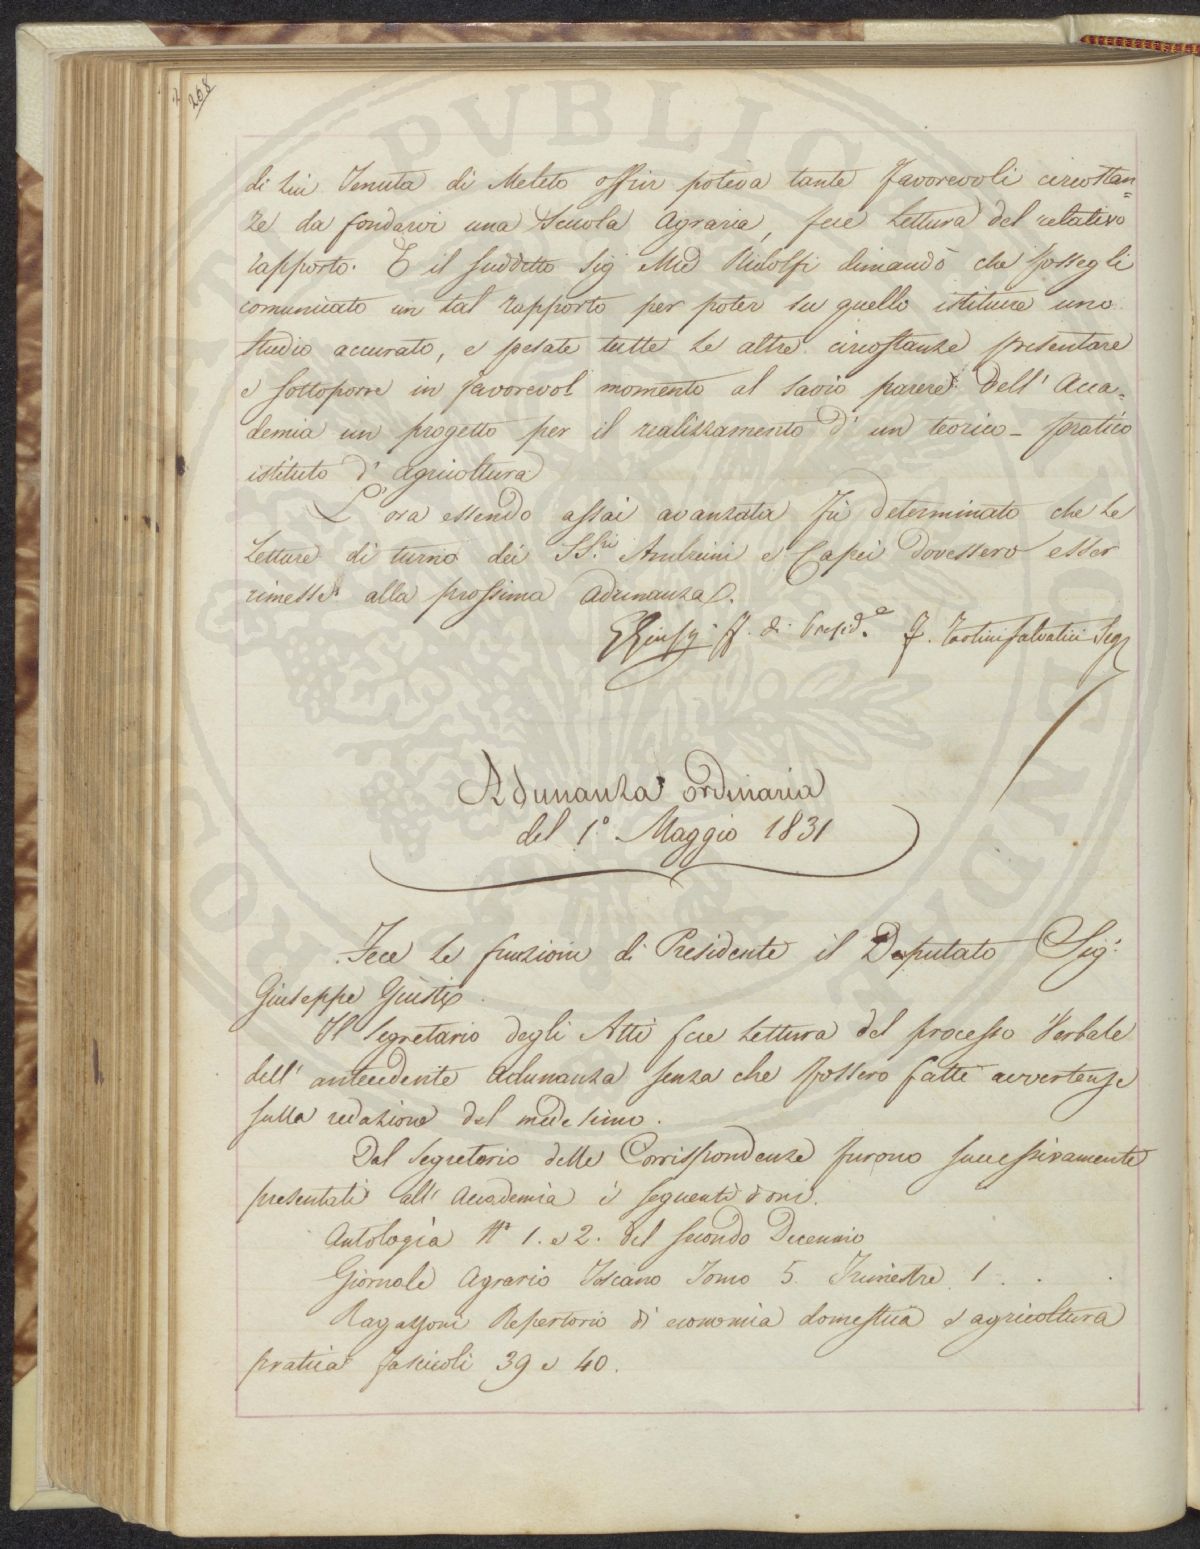 268
di lui Tenuta di Meleto offrir poteva tante favorevoli circostan=
ze da fondarvi una Scuola Agraria, fece Lettura del relativo
rapporto. E il suddetto Sig Ridolfi dimandò che fossegli
comunicato un tal rapporto per poter su quello istituire uno
studio accurato, e pesate tutte le altre circostanze presentare
e sottoporre in favorevol momento al savio parere dell' Acca=
demia un progetto per il realizzamento d' un teorico-pratico
istituto d' agricoltura
L' ora essendo assai avanzata fù determinato che le
Letture di turno dei SS.ri Andreini e Capei dovessero esser
rimesse alla prossima Adunanza.
GGiusti ff. di Presid.e F. Tartini Salvatici Seg
Adunanza ordinaria
del 1° Maggio 1831
Fece le funzioni di Presidente il Deputato Sig.
Giuseppe Giusti
Il Segretario degli Atti fece Lettura del processo Verbale
dell' antecedente adunanza senza che fossero fatte avvertenze
sulla redazione del medesimo.
Dal Segretario delle Corrispondenze furono successivamente
presentati all' Accademia i seguenti doni.
Antologia N° 1. e 2. del secondo Decennio
Giornale Agrario Toscano Tomo 5 Trimestre 1.
Ragazzoni Repertorio di economia domestica e agricoltura
pratica fascicoli 39 e 40.